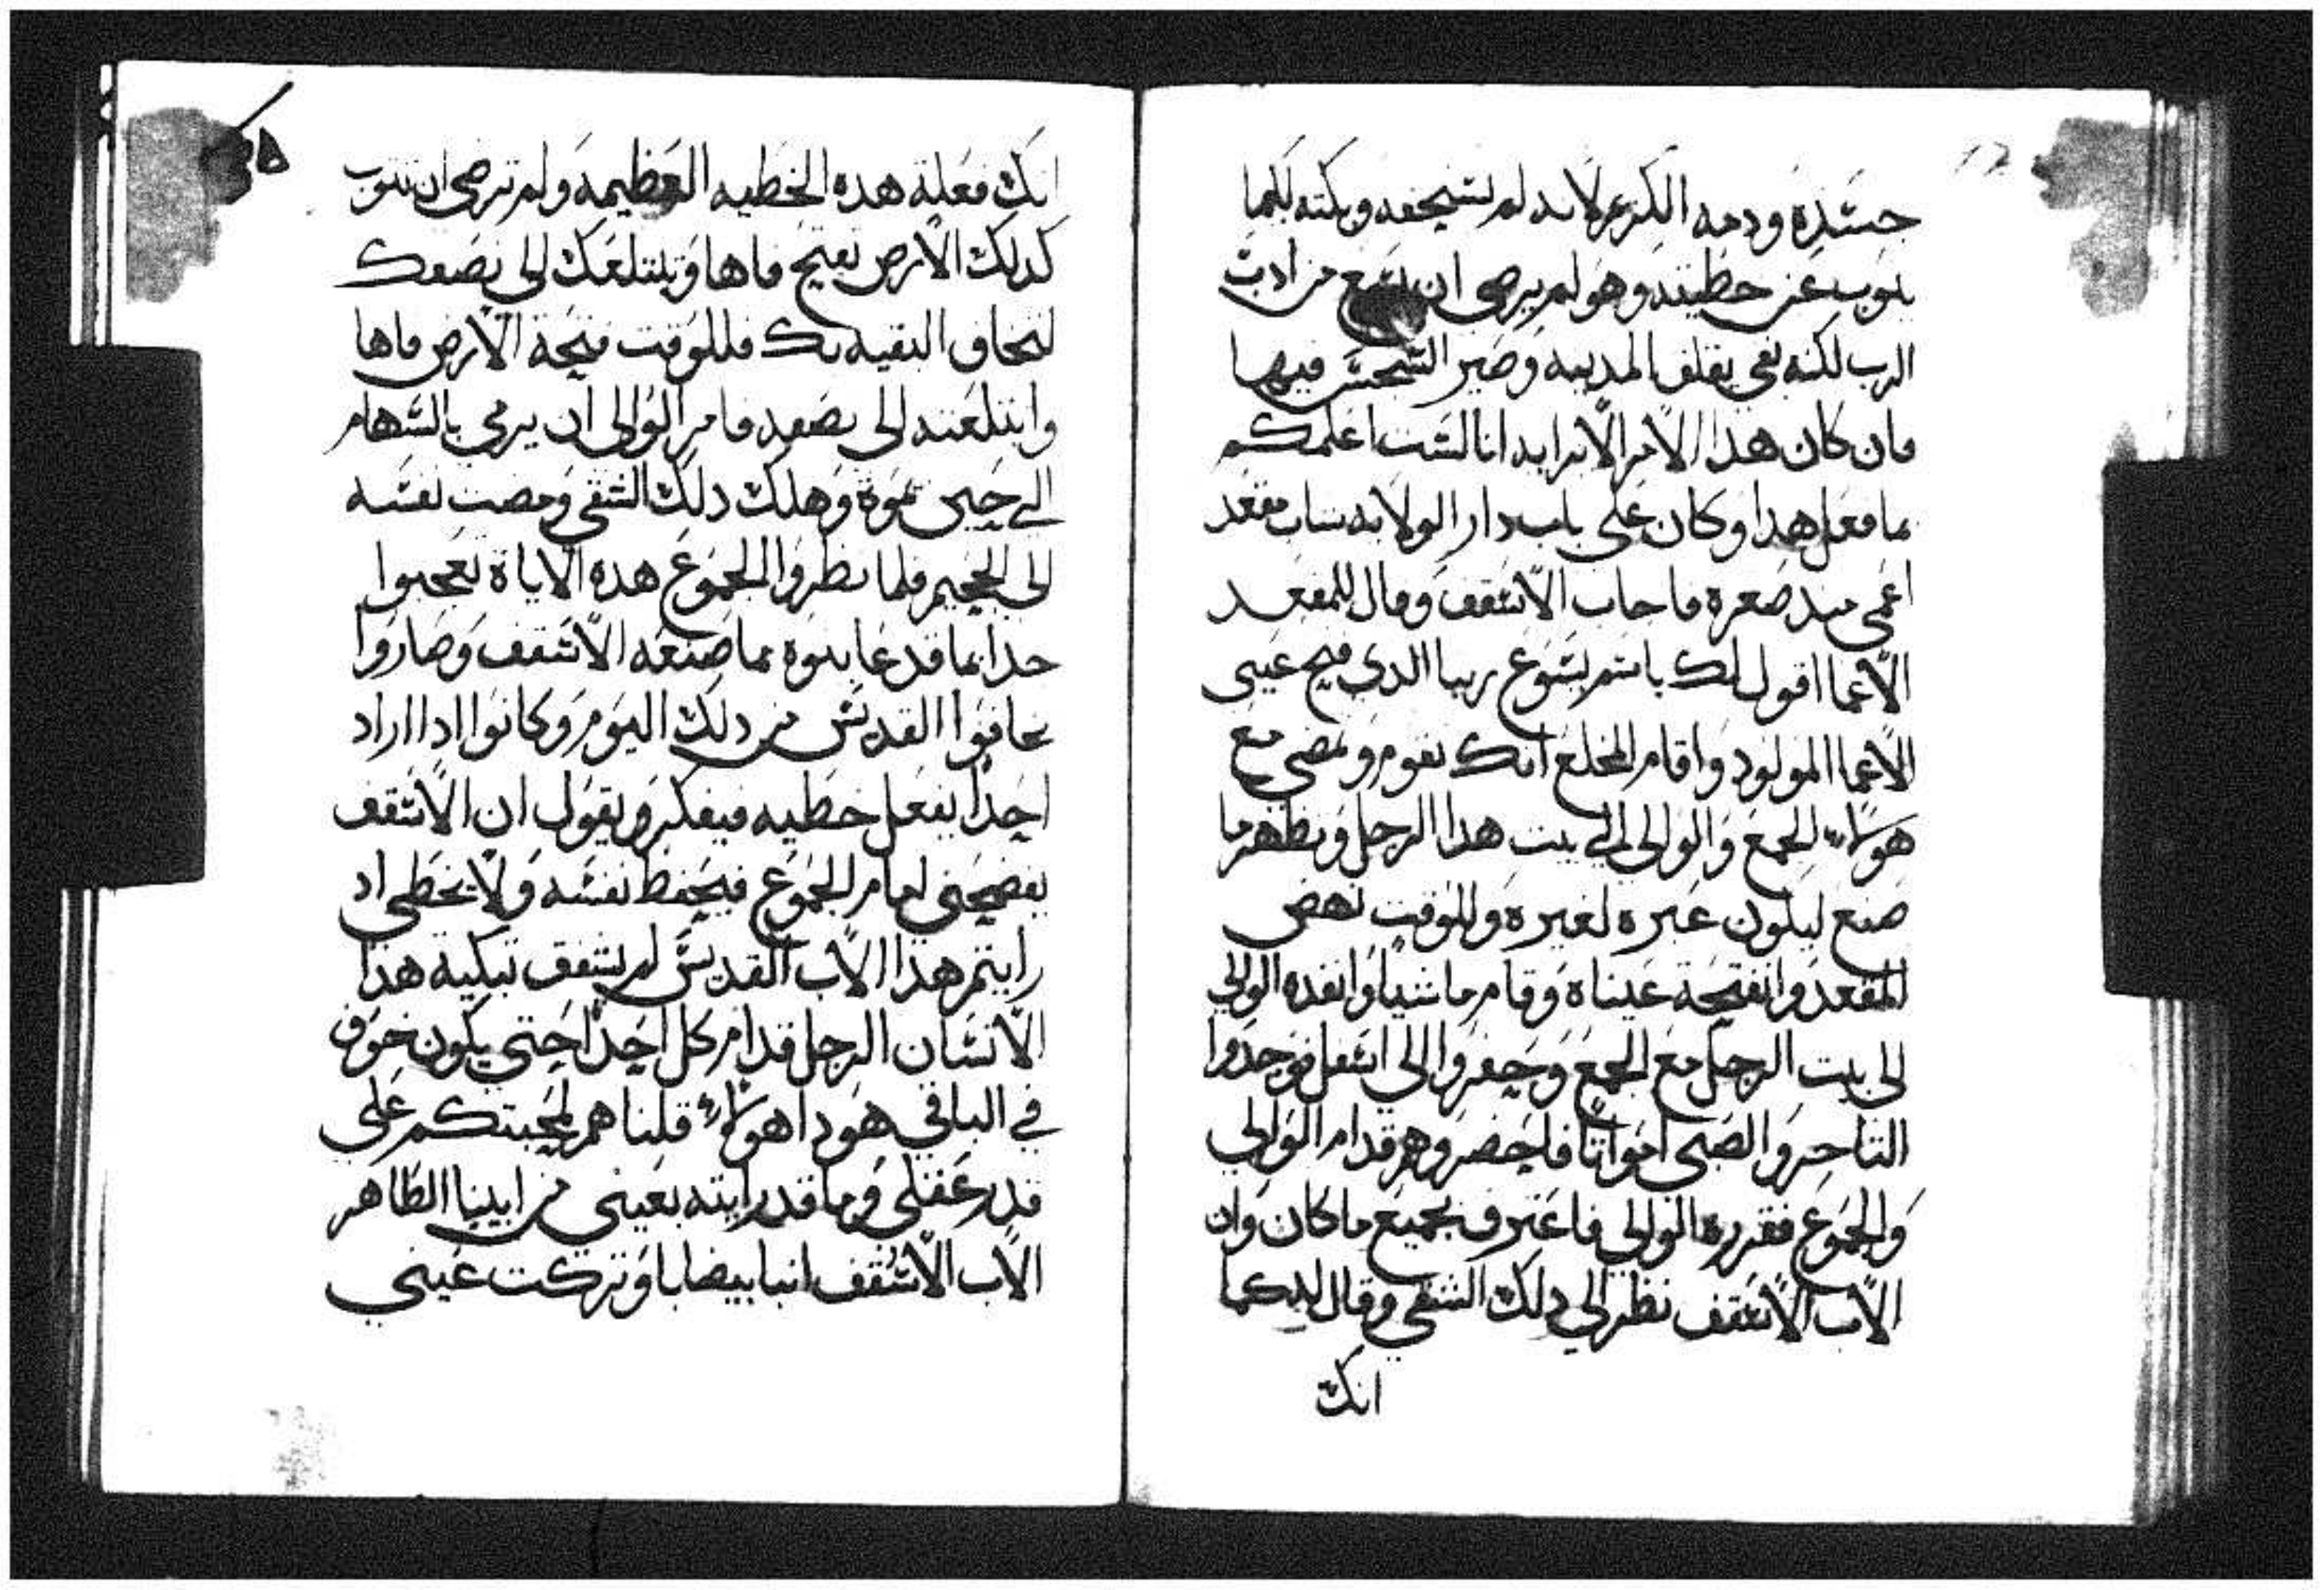 جسده ودمه الكريم لانه لم يستحقه وبكته لكيما
يتوب عن خطيته وهو لم يرضى ان يسمع من ادب
الرب لكنه بقي يقلق المدينه وصير السجس فيها
فان كان هذا الامر الا برايه انا لست اعلمكم
بما فعل هذا وكان على باب دار الولايه شاب مقعد
اعمى منذ صغره فاجاب الاسقف وقال للمقعد
الاعما اقول لك باسم يسوع ربنا الذي فتح عيني
الاعما المولود واقام المخلع انك تقوم وتمضي مع
هولاء الجمع والوالي الي بيت هذا الرجل وتظهر ما
صنع ليكون عبره لغيره وللوقت نهض
المقعد وانفتحة عيناه وقام ماشيا وانفذه الوالي
الى بيت الرجل مع الجمع وحفروا الى اسفل فوجدوا
التاجر والصبى امواتا فاحضروهم قدام الوالي
والجموع فقرره الوالي فاعترف بجميع ما كان وان
الاب الاسقف نظر الي دلك الشقي وقال له كما
انك
٣٥
انك فعلة هده الخطيه العظيمه ولم ترضى ان تتوب
كدلك الارض تفتح فاها وتبتلعك الى نصفك
لتخاف البقيه بك فللوقت فتحة الارض فاها
وابتلعته الى نصفه فامر الوالى ان يرمي بالسهام
الي حين موته وهلك دلك الشقي ومضت نفسه
الى الجحيم فلما نظروا الجموع هده الاياة تعجبوا
جدا بما قد عاينوه مما صنعه الاسقف وصاروا
يخافوا القديس من دلك اليوم وكانوا ادا اراد
احدا يفعل خطيه فيفكر ويقول ان الاسقف
يفضحني امام الجموع فيحفظ نفسه ولا يخطى اد
رايتم هذا الاب القديس لم يشفق تبكية هذا
الانسان الرجل قدام كل احدا حتى يكون خوف
في الباقي هودا هولاء قلناهم لمحبتكم على
قدر عقلي وما قد رايته بعيني من ابينا الطاهر
الاب الاسقف انبا بيضابا وتركت عيني